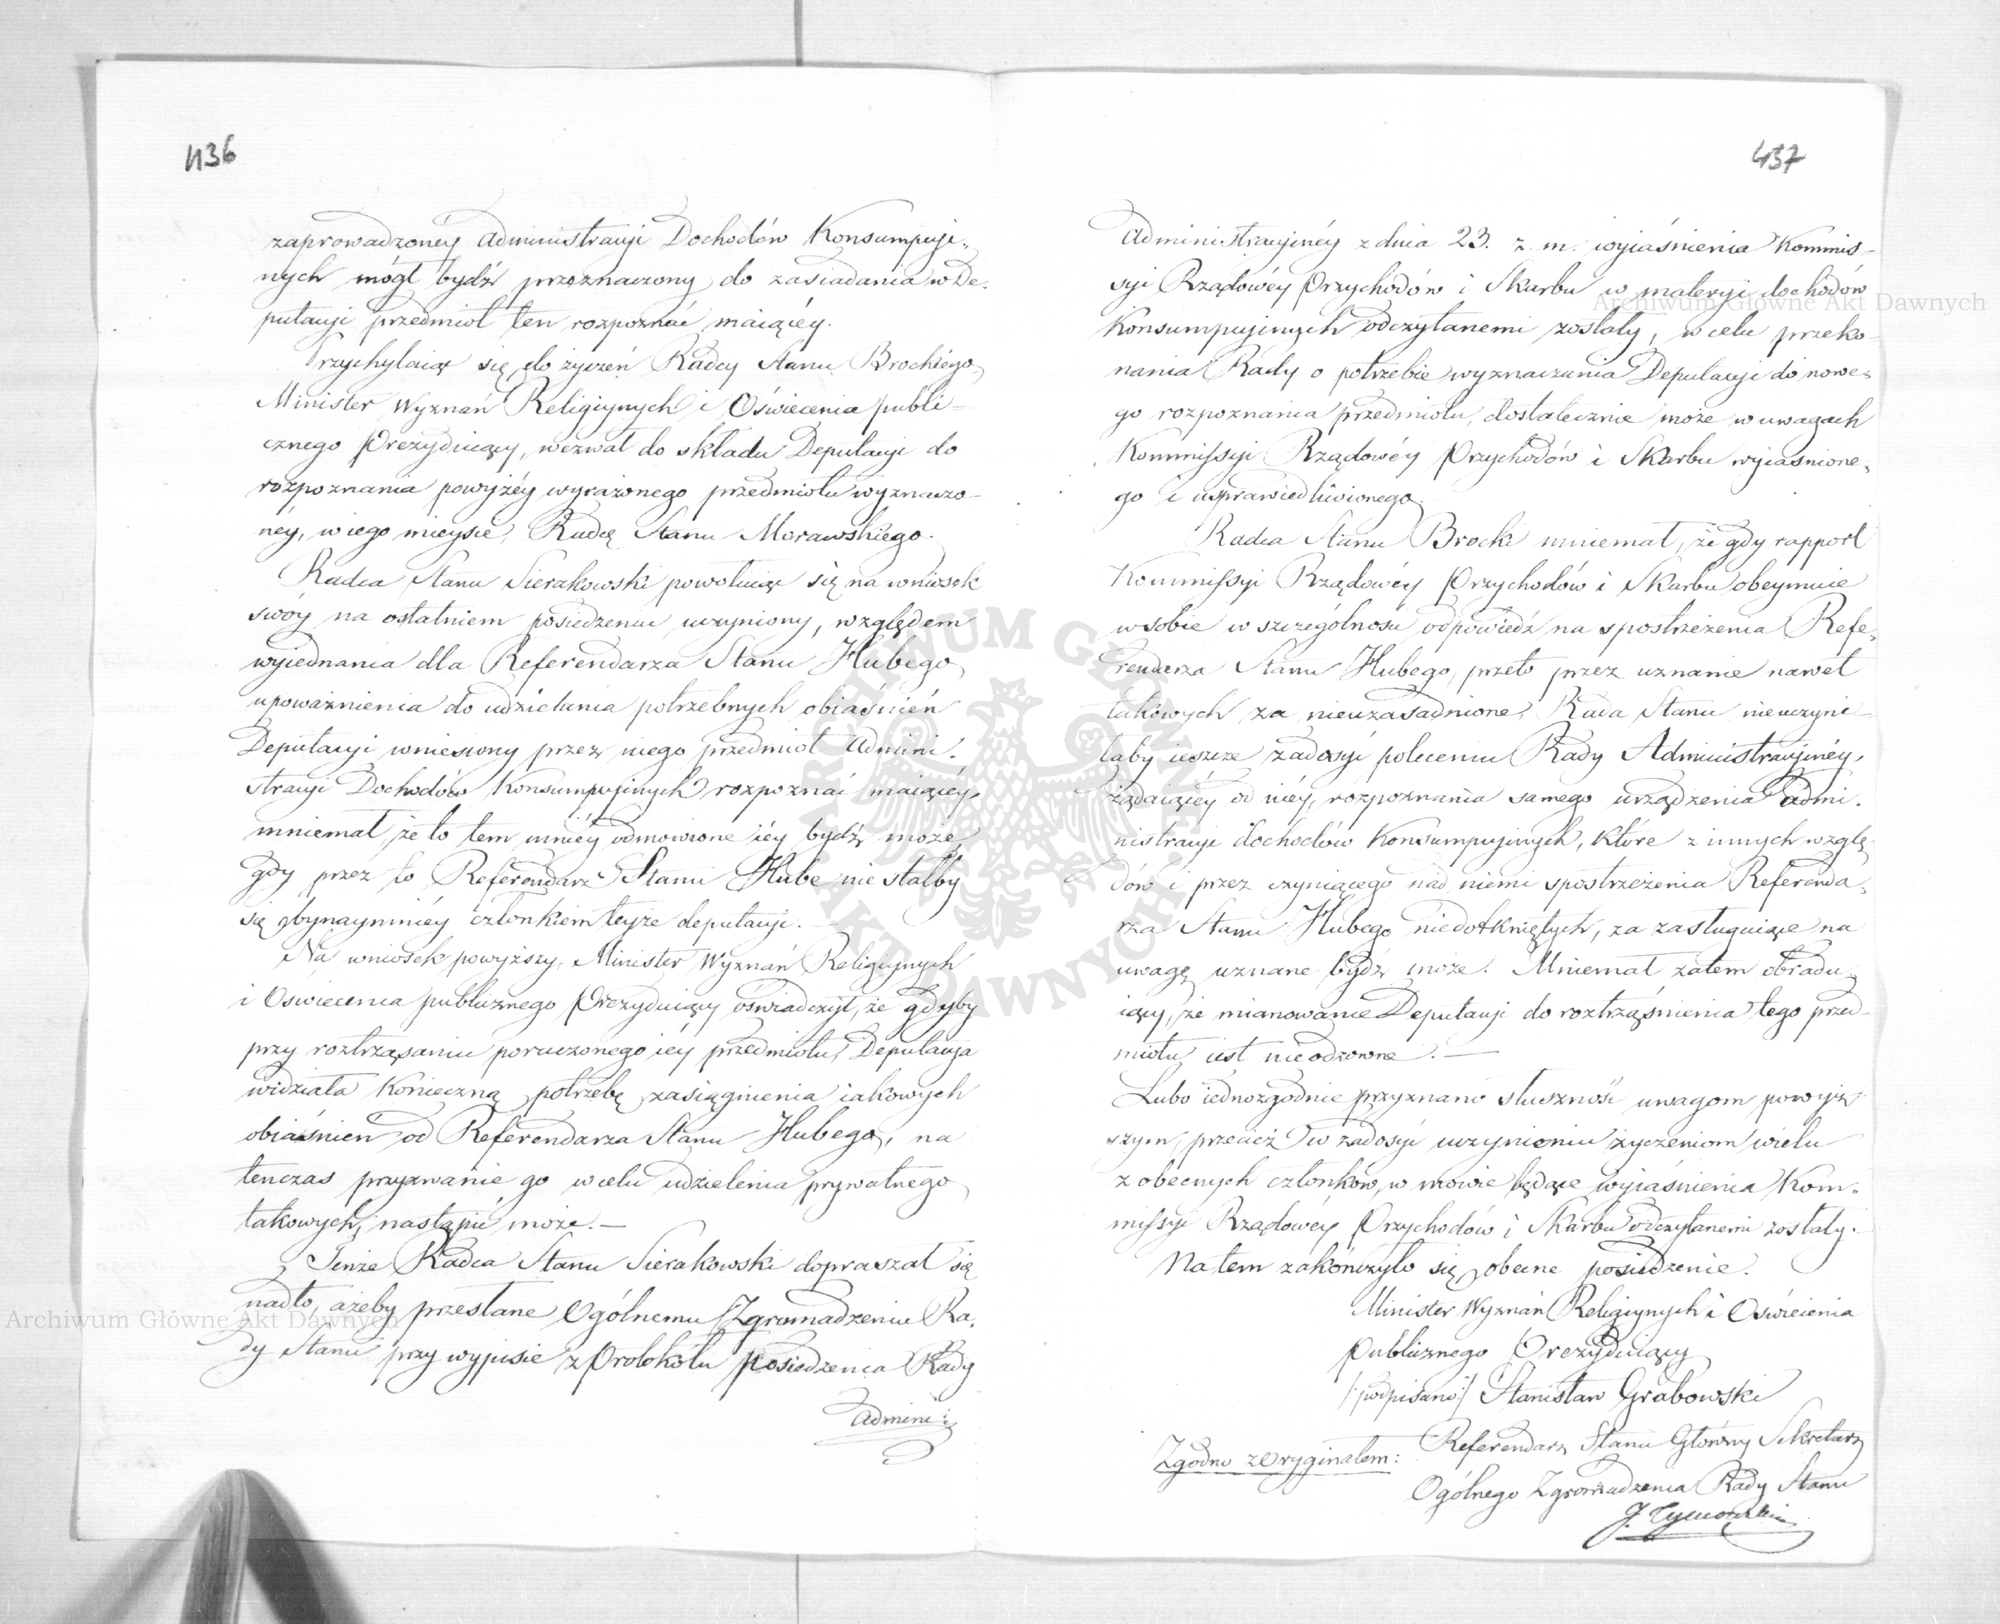 436
zaprowadzonéy Administracyi Dochodów Konsumpcyi-
nych mógł bydź przeznaczony do zasiadania w De-
putacyi przedmiot ten rozpoznać maiącéy.
Przychylaiąc się do życzeń Radcy Stanu Brockiego,
Minister Wyznań Religiynych i Oświecenia publi-
cznego Prezyduiący, wezwał do składu Deputacyi do
rozpoznania powyżéy wyrażonego przedmiotu wyznaczo-
néy, w iego mieysce, Radcę Stanu Morawskiego.
Radca Stanu Sierakowski powołuiąc się na wniosek
swóy na ostatniem posiedzeniu uczyniony, względem
wyiednania dla Referendarza Stanu Hubego,
upoważnienia do udzielania potrzebnych obiaśnień
Deputacyi wniesiony przez niego przedmiot Admini-
stracyi Dochodów Konsumpcyinych rozpoznać maiącéy,
mniemał, że to tem mniéy odmowione iéy bydź może,
gdy przez to Referendarz Stanu Hube nie stałby
się bynaymniéy członkiem teyże deputacyi.
Na wniosek powyższy, Minister Wyznań Religiynych
i Oswiecenia publicznego Prezyduiący oświadczył, że gdyby
przy roztrząsaniu poruczonego iéy przedmiotu, Deputacya
widziała konieczną potrzebę zasiągnienia iakowych
obiaśnień od Referendarza Stanu Hubego, na
tenczas przyzwanie go w celu udzielenia prywatnego
takowych, nastąpić może. —
Tenże Radca Stanu Sierakowski dopraszał się
nadto, ażeby przesłane Ogólnemu Zgromadzeniu Ra-
dy Stanu przy wypisie z Protokółu posiedzenia Rady
Admini-
437
Administracyinéy z dnia 23. z. m. wyiaśnienia Kommis-
syi Rządowéy Przychodów i Skarbu w materyi dochodów
Konsumpcyinych odczytanemi zostały, w celu przeko-
nania Rady o potrzebie wyznaczania Deputacyi do nowe-
go rozpoznania przedmiotu, dostatecznie może w uwagach
Kommissyi Rządowéy Przychodów i Skarbu wyiaśnione-
go i usprawiedliwionego.
Radca Stanu Brocki mniemał, że gdy rapport
Kommissyi Rządowéy Przychodów i Skarbu obeymuie
w sobie w szczególnosci odpowiedź na spostrzeżenia Refe-
rendarza Stanu Hubego, przeto przez uznanie nawet
takowych za nieuzasadnione, Rada Stanu nieuczyni-
łaby ieszcze zadosyć poleceniu Rady Administracyinéy,
żądaiącéy od niéy, rozpoznania samego urządzenia Admi-
nistracyi dochodów Konsumpcyinych, które z innych wzglę-
dów i przez czyniącego nad niemi spostrzeżenia Referenda-
rza Stanu Hubego niedotkniętych, za zasługuiące na
uwagę uznane bydź może. Mniemał zatem obradu-
iący, że mianowanie Deputacyi do roztrząśnienia tego przed-
miotu iest nieodzowne. —
Lubo iednozgodnie przyznano słuszność uwagom powyż-
szym, przecież w zadosyć uczynieniu życzeniom wielu
z obecnych członków, w mowie będące wyiaśnienia Kom-
missyi Rządowéy Przychodów i Skarbu odczytanemi zostały.
Na tem zakończyło się obecne posiedzenie.
Minister Wyznań Religiynych i Oświecenia
Publicznego Prezyduiący
/:podpisano:/ Stanisław Grabowski
Zgodno z Oryginałem:
Referendarz Stanu Główny Sekretarz
Ogólnego Zgromadzenia Rady Stanu
J. Tymowski
Archiwum Główne Akt Dawnych
Archiwum Główne Akt Dawnych
ARCHIWUM GŁÓWNE AKT DAWNYCH